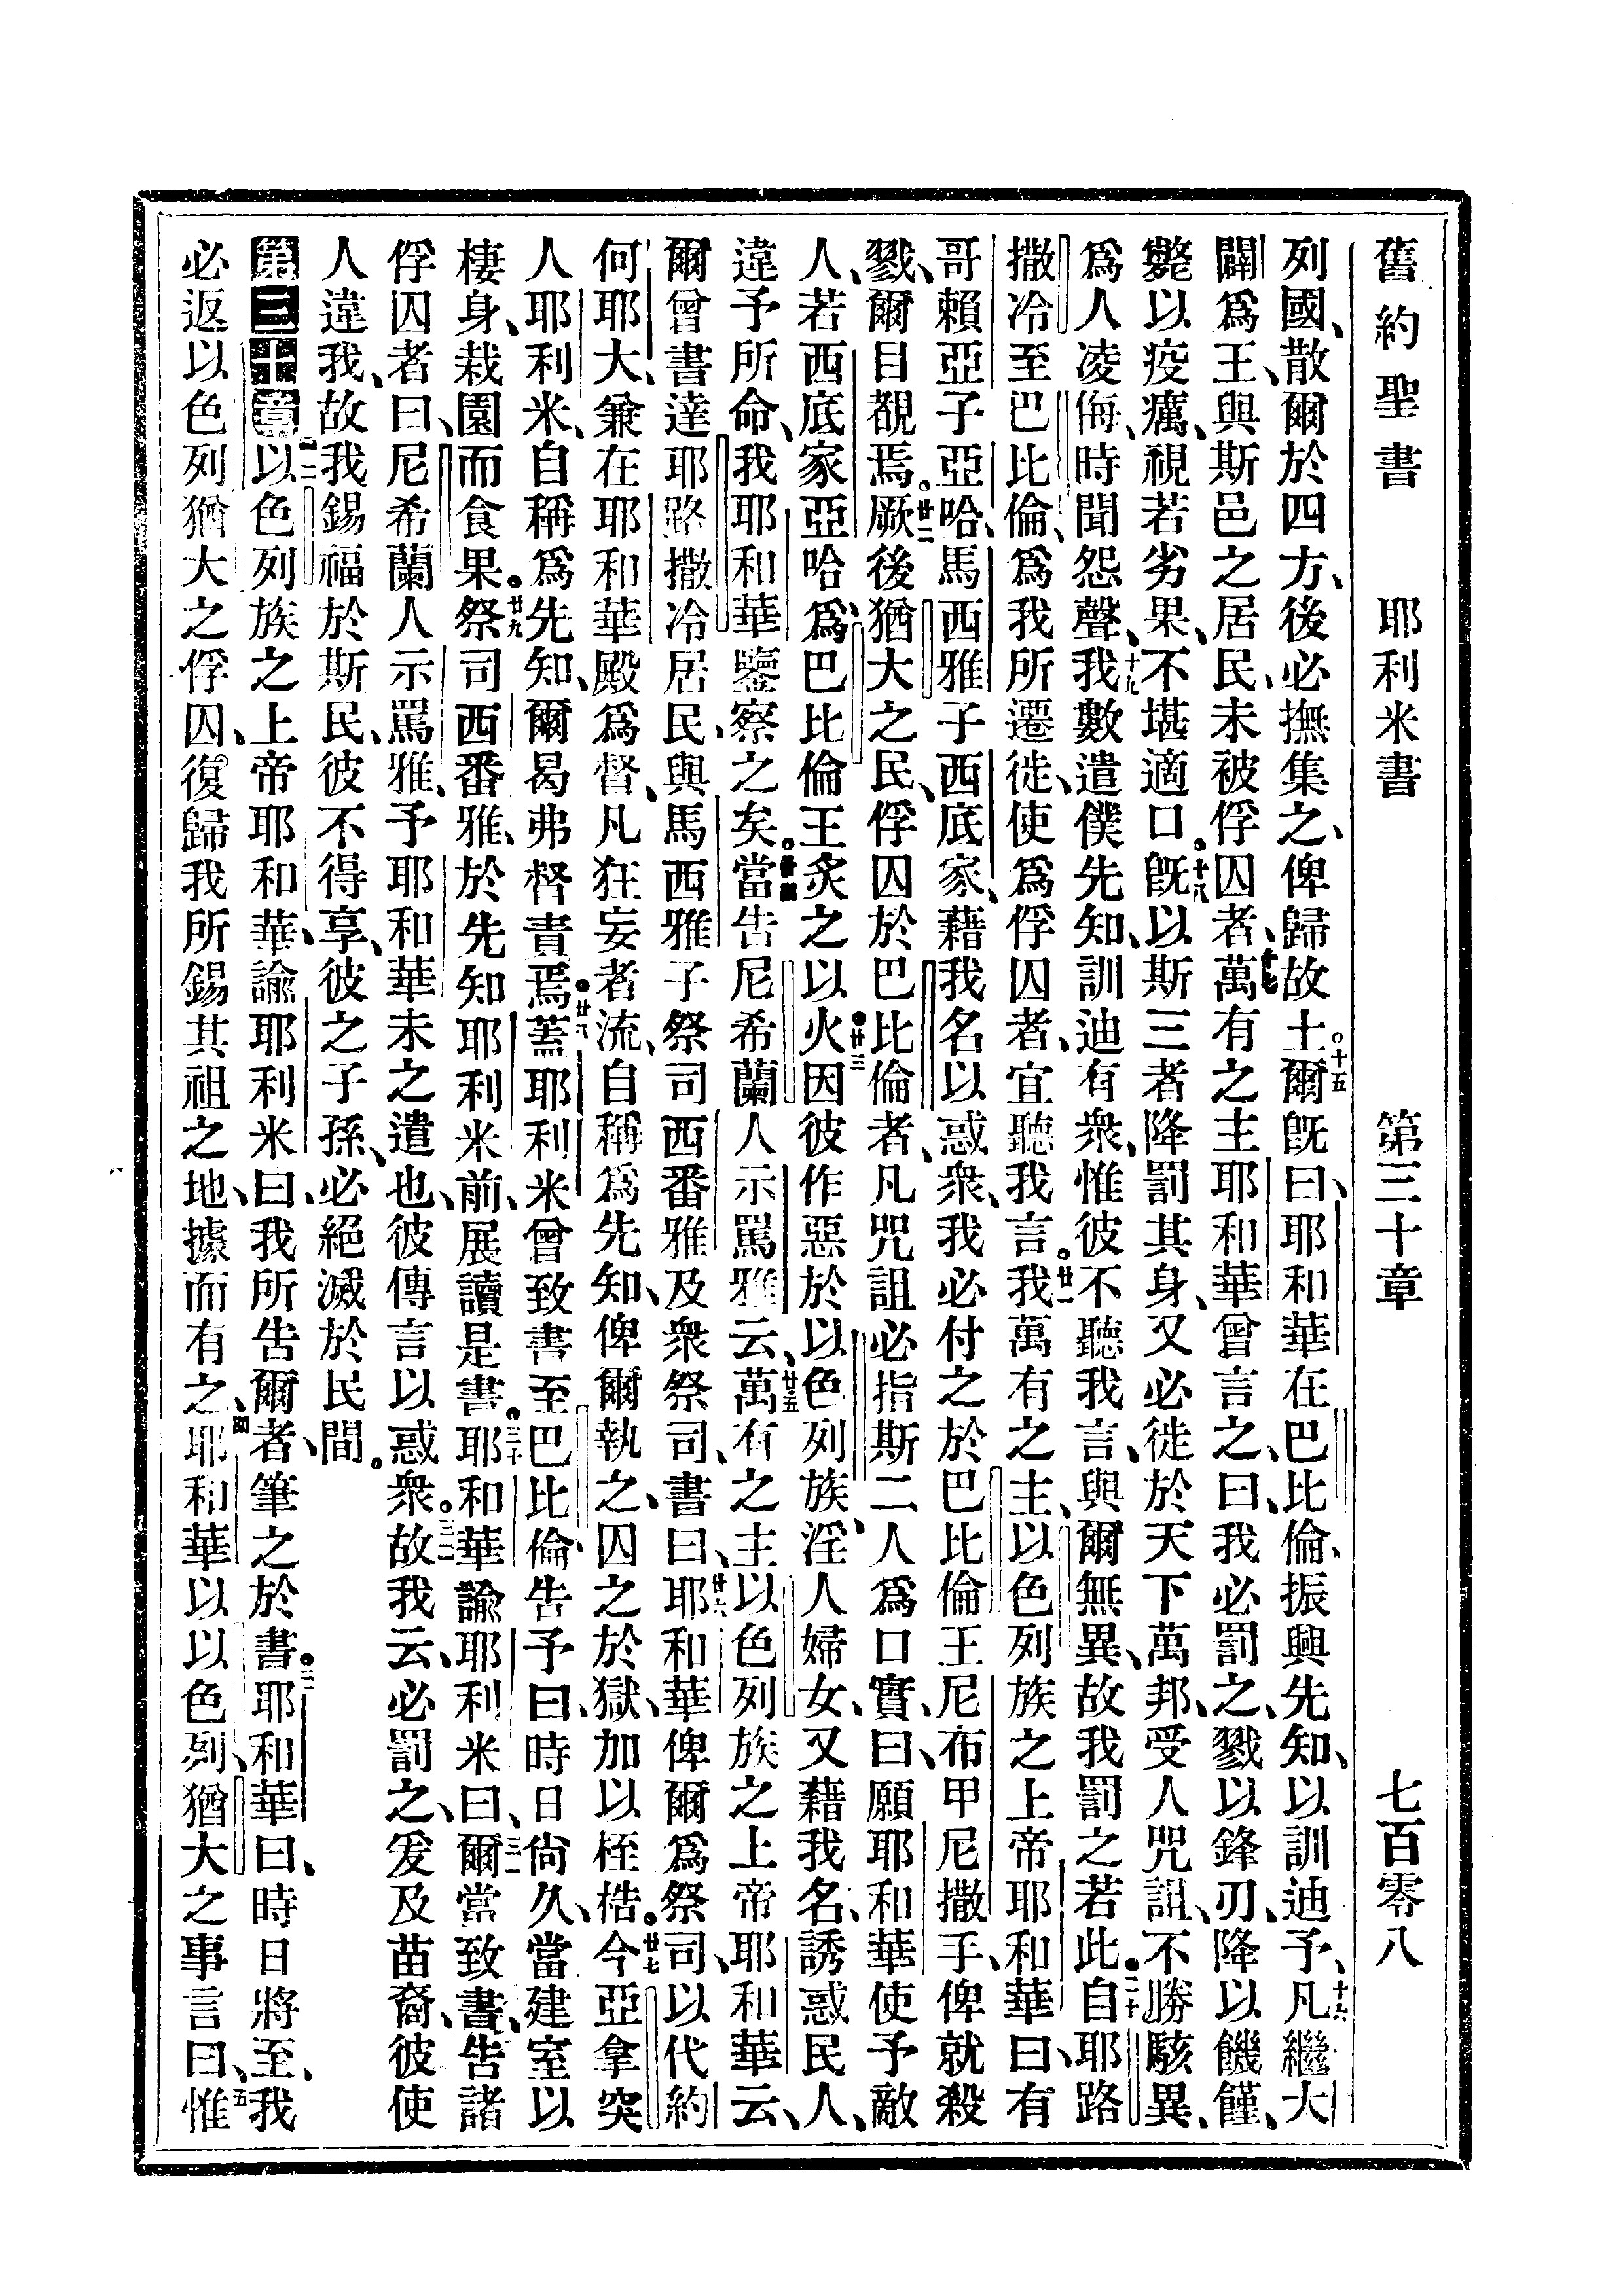 舊約聖書　耶利米書　第三十章　七百零八
列國、散爾於四方、後必撫集之、俾歸故土。十五爾旣曰、耶和華在巴比倫、振興先知、以訓迪予、十六凡繼大
闢爲王、與斯邑之居民、未被俘囚者、十七萬有之主耶和華曾言之、曰、我必罰之、戮以鋒刃、降以饑饉、
斃以疫癘、視若劣果、不堪適口。十八旣以斯三者降罰其身、又必徙於天下萬邦、受人咒詛、不勝駭異、
爲人凌侮、時聞怨聲、十九我數遣僕先知、訓迪有衆、惟彼不聽我言、與爾無異、故我罰之若此。二十自耶路
撒冷至巴比倫、爲我所遷徙、使爲俘囚者、宜聽我言。廿一我萬有之主、以色列族之上帝耶和華曰、有
哥賴亞子亞哈、馬西雅子西底家、藉我名以惑衆、我必付之於巴比倫王尼布甲尼撒手、俾就殺
戮、爾目覩焉。廿二厥後猶大之民、俘囚於巴比倫者、凡咒詛必指斯二人爲口實、曰、願耶和華使予敵
人、若西底家亞哈、爲巴比倫王炙之以火。廿三因彼作惡於以色列族、淫人婦女、又藉我名、誘惑民人、
違予所命、我耶和華鑒察之矣。廿四當告尼希蘭人示罵雅云、廿五萬有之主以色列族之上帝耶和華云、
爾曾書達耶路撒冷居民、與馬西雅子祭司西番雅及衆祭司、書曰、廿六耶和華俾爾爲祭司、以代約
何耶大、兼在耶和華殿爲督、凡狂妄者流、自稱爲先知、俾爾執之、囚之於獄、加以桎梏。廿七今亞拿突
人耶利米、自稱爲先知、爾曷弗督責焉。廿八蓋耶利米曾致書至巴比倫、告予曰、時日尙久、當建室以
棲身、栽園而食果。廿九祭司西番雅、於先知耶利米前、展讀是書。三十耶和華諭耶利米曰、三一爾當致書、告諸
俘囚者曰、尼希蘭人示罵雅、予耶和華未之遣也、彼傳言以惑衆。三二故我云、必罰之、爰及苗裔、彼使
人違我、故我錫福於斯民、彼不得享、彼之子孫、必絕滅於民間。
第三十章一二以色列族之上帝耶和華、諭耶利米曰、我所告爾者、筆之於書。三耶和華曰、時日將至、我
必返以色列猶大之俘囚、復歸我所錫其祖之地、據而有之、四耶和華以以色列、猶大之事言曰、五惟